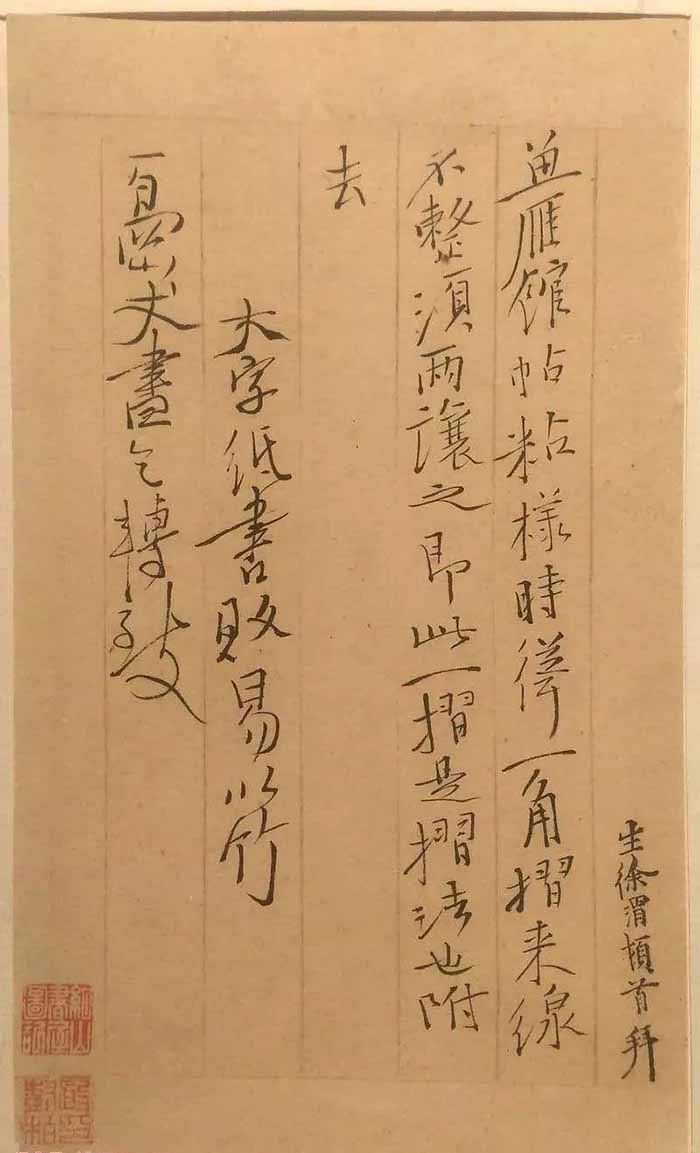 生徐渭頓首拜
魚雁館帖粘樣時從一角摺来線
不整須兩讓之即此一摺是摺法也附
去
大字紙書敗易以竹
丈畫乞轉致